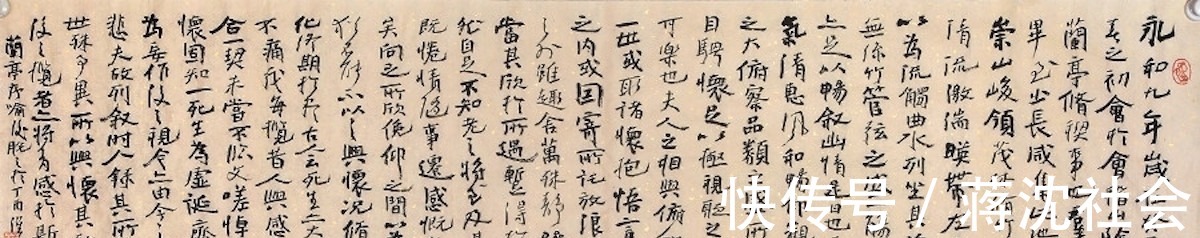 永和九年歲
春之初會於會稽山陰
蘭亭脩禊事也羣
畢至少長咸集此
崇山峻領茂林脩竹
清流激湍暎帶左
以為流觴曲水列坐其
無絲竹管弦之盛
上足以暢敘幽情是日也
氣清惠風和暢仰觀
之大俯察品類之
目騁懷足以極視聽之
可樂也夫人之相與俯
一世或取諸懷抱悟言
之内或因寄所託放浪
之外雖趣舍萬殊靜躁
當其欣於所遇蹔得於
然自足不知老之將至及
既惓情隨事遷感慨
矣向之所欣俛仰之間以
猶不能不以之興懷況脩
化終期於盡古人云死生亦大
不痛哉每覽昔人興感
合一契未嘗不臨文嗟悼
懷固知一死生為虛誕齊
為妄作後之視今亦由今之
悲夫故列敘時人錄其所
世殊事異所以興懷其
後之覽者亦將有感於斯
蘭亭序
快传号 / 蒋沈社会